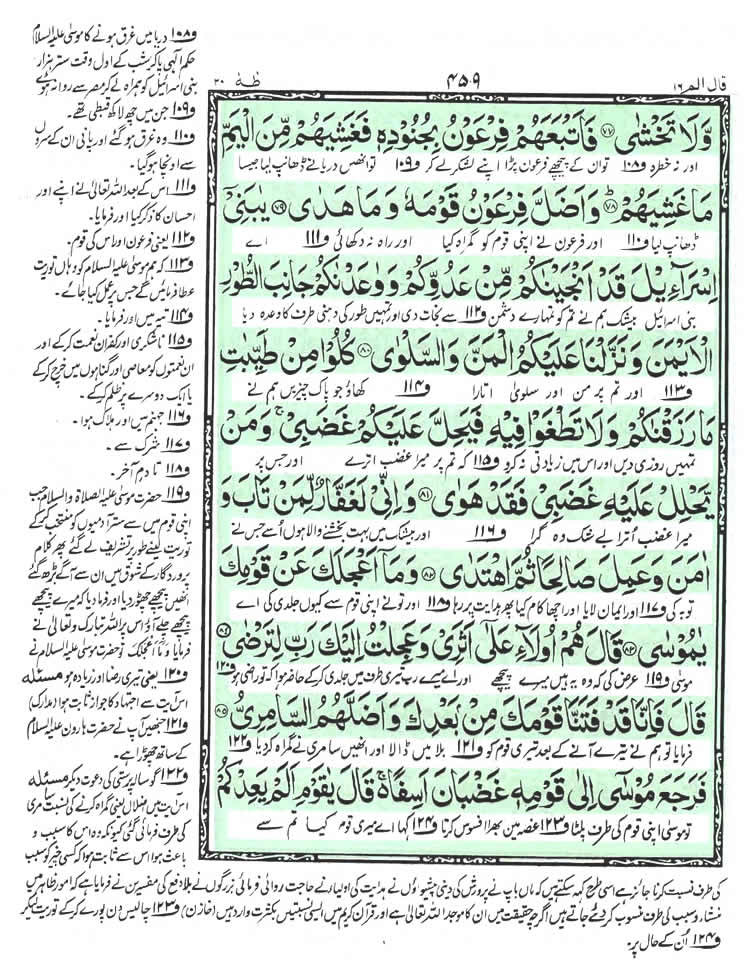 قال الم ١٦
٤٥٩
طٰهٰ ٢٠
وَّلَا تَخْشٰى ﴿٧٧﴾ فَاَتْبَعَهُمْ فِرْعَوْنُ بِجُنُوْدِهٖ فَغَشِيَهُمْ مِّنَ الْيَمِّ
اور نہ خطرہ ف١٠٨ تو ان کے پیچھے فرعون پڑا اپنے لشکر لے کر ف١٠٩ تو انھیں دریا نے ڈھانپ لیا جیسا
مَا غَشِيَهُمْ ﴿٧٨﴾ وَاَضَلَّ فِرْعَوْنُ قَوْمَهٗ وَمَا هَدٰى ﴿٧٩﴾ يٰبَنِيْٓ
ڈھانپ لیا ف١١٠ اور فرعون نے اپنی قوم کو گمراہ کیا اور راہ نہ دکھائی ف١١١ اے
اِسْرَآءِيْلَ قَدْ اَنْجَيْنٰكُمْ مِّنْ عَدُوِّكُمْ وَوٰعَدْنٰكُمْ جَانِبَ الطُّوْرِ
بنی اسرائیل بیشک ہم نے تم کو تمہارے دشمن ف١١٢ سے نجات دی اور تمہیں طور کی دہنی طرف کا وعدہ دیا
الْاَيْمَنَ وَنَزَّلْنَا عَلَيْكُمُ الْمَنَّ وَالسَّلْوٰى ﴿٨٠﴾ كُلُوْا مِنْ طَيِّبٰتِ
ف١١٣ اور تم پر من اور سلویٰ اتارا ف١١٤ کھاؤ جو پاک چیزیں ہم نے
مَا رَزَقْنٰكُمْ وَلَا تَطْغَوْا فِيْهِ فَيَحِلَّ عَلَيْكُمْ غَضَبِيْ ۚ وَمَنْ
تمہیں روزی دیں اور اس میں زیادتی نہ کرو ف١١٥ کہ تم پر میرا غضب اترے اور جس پر
يَّحْلِلْ عَلَيْهِ غَضَبِيْ فَقَدْ هَوٰى ﴿٨١﴾ وَاِنِّيْ لَغَفَّارٌ لِّمَنْ تَابَ وَ
میرا غضب اُترا بے شک وہ گرا ف١١٦ اور بیشک میں بہت بخشنے والا ہوں اُسے جس نے
اٰمَنَ وَعَمِلَ صَالِحًا ثُمَّ اهْتَدٰى ﴿٨٢﴾ وَمَآ اَعْجَلَكَ عَنْ قَوْمِكَ
توبہ کی ف١١٧ اور ایمان لایا اور اچھا کام کیا پھر ہدایت پر رہا ف١١٨ اور تو نے اپنی قوم سے کیوں جلدی کی اے
يٰمُوْسٰى ﴿٨٣﴾ قَالَ هُمْ اُولَآءِ عَلٰٓى اَثَرِيْ وَعَجِلْتُ اِلَيْكَ رَبِّ لِتَرْضٰى ﴿٨٤﴾
موسیٰ ف١١٩ عرض کی کہ وہ یہ ہیں میرے پیچھے اور اے میرے رب تیری طرف میں جلدی کر کے حاضر ہوا کہ تو راضی ہو ف١٢٠
قَالَ فَاِنَّا قَدْ فَتَنَّا قَوْمَكَ مِنْۢ بَعْدِكَ وَاَضَلَّهُمُ السَّامِرِيُّ ﴿٨٥﴾
فرمایا تو ہم نے تیرے آنے کے بعد تیری قوم کو ف١٢١ بلا میں ڈالا اور انھیں سامری نے گمراہ کر دیا ف١٢٢
فَرَجَعَ مُوْسٰٓى اِلٰى قَوْمِهٖ غَضْبَانَ اَسِفًا ۚ قَالَ يٰقَوْمِ اَلَمْ يَعِدْكُمْ
تو موسیٰ اپنی قوم کی طرف پلٹا ف١٢٣ غصہ میں بھرا افسوس کرتا ف١٢٤ کہا اے میری قوم کیا تم سے
ف١٠٨ دریا میں غرق ہونے کا موسیٰ علیہ السلام
حکم الٰہی پا کر شب کے اول وقت ستر ہزار
بنی اسرائیل کو ہمراہ لے کر مصر سے روانہ ہوئے
ف١٠٩ جن میں چھ لاکھ قبطی تھے۔
ف١١٠ وہ غرق ہو گئے اور پانی ان کے سروں
سے اونچا ہو گیا۔
ف١١١ اس کے بعد اللہ تعالیٰ نے اپنے اور
احسان کا ذکر کیا اور فرمایا۔
ف١١٢ یعنی فرعون اور اس کی قوم۔
ف١١٣ کہ ہم موسیٰ علیہ السلام کو وہاں توریت
عطا فرمائیں گے جس پر عمل کیا جائے۔
ف١١٤ تیہ میں اور فرمایا۔
ف١١٥ ناشکری اور کفران نعمت کر کے اور
ان نعمتوں کو معاصی اور گناہوں میں خرچ کر کے
یا ایک دوسرے پر ظلم کر کے۔
ف١١٦ جہنم میں اور ہلاک ہوا۔
ف١١٧ شرک سے۔
ف١١٨ تا دم آخر۔
ف١١٩ حضرت موسیٰ علیہ الصلاۃ والسلام جب
اپنی قوم میں سے ستر آدمیوں کو منتخب کر کے
توریت لینے طور پر تشریف لے گئے پھر کلام
پروردگار کے شوق میں ان سے آگے بڑھ گئے
انھیں پیچھے چھوڑ دیا اور فرما دیا کہ میرے پیچھے
پیچھے چلے آؤ اس پر اللہ تبارک وتعالیٰ نے
فرمایا وَمَآ اَعْجَلَكَ تو حضرت موسیٰ علیہ السلام نے
ف١٢٠ یعنی تیری رضا اور زیادہ ہو مسئلہ
اس آیت سے اجتہاد کا جواز ثابت ہوا (مدارک)
ف١٢١ جنھیں آپ نے حضرت ہارون علیہ السلام
کے ساتھ چھوڑا ہے۔
ف١٢٢ گوسالہ پرستی کی دعوت دے کر مسئلہ
اس آیت میں اضلال یعنی گمراہ کرنے کی نسبت سامری
کی طرف فرمائی گئی کیونکہ وہ اس کا سبب و
باعث ہوا اس سے ثابت ہوا کہ کسی چیز کو سبب
کی طرف نسبت کرنا جائز ہے اسی طرح کہہ سکتے ہیں کہ ماں باپ نے پرورش کی دینی پیشواؤں نے ہدایت کی اولیا نے حاجت روائی فرمائی بزرگوں نے بلا دفع کی مفسرین نے فرمایا ہے کہ امور ظاہر میں
منشاء و سبب کی طرف منسوب کر دیئے جاتے ہیں اگرچہ حقیقت میں ان کا موجد اللہ تعالیٰ ہے اور قرآن کریم میں ایسی نسبتیں بکثرت وارد ہیں (خازن) ف١٢٣ چالیس دن پورے کر کے توریت لیکر
ف١٢٤ اُن کے حال پر۔